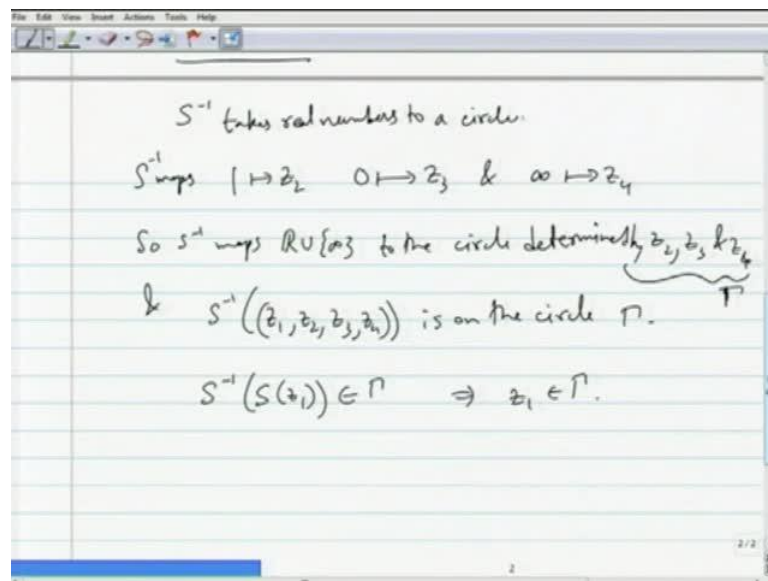 File Edit View Insert Actions Tools Help
S⁻¹ takes real numbers to a circle.
S⁻¹ maps 1 ↦ z₂ 0 ↦ z₃ & ∞ ↦ z₄
So S⁻¹ maps ℝ∪{∞} to the circle determined by z₂, z₃ & z₄
Γ
& S⁻¹((z₁, z₂, z₃, z₄)) is on the circle Γ.
S⁻¹(S(z₁)) ∈ Γ ⇒ z₁ ∈ Γ.
2/2
2